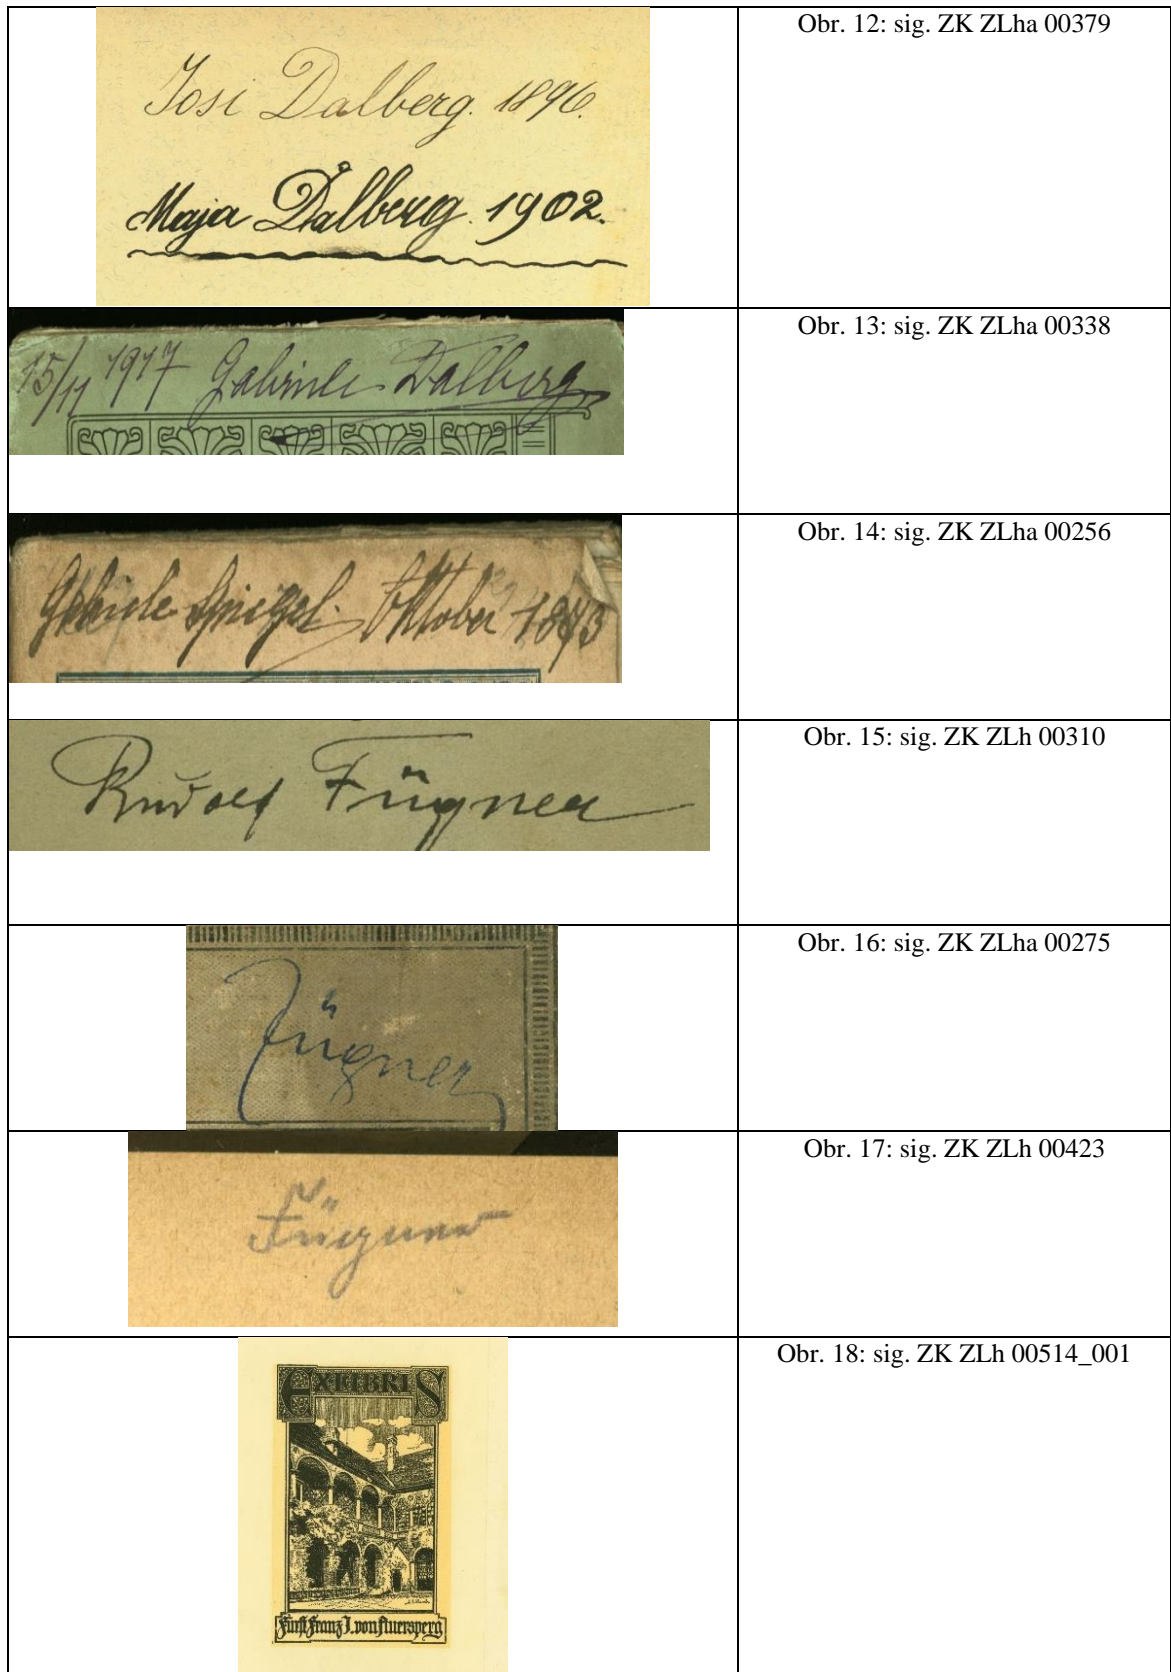 Josi Dalberg. 1896.
Maja Dalberg. 1902.
Obr. 12: sig. ZK ZLha 00379
15/11 1917 Gabriele Dalberg
Obr. 13: sig. ZK ZLha 00338
Gabriele Spiegel. Oktober
Obr. 14: sig. ZK ZLha 00256
Rudolf Fügner
Obr. 15: sig. ZK ZLh 00310
Fügner
Obr. 16: sig. ZK ZLha 00275
Fügner
Obr. 17: sig. ZK ZLh 00423
EXLIBRIS
Fürst Franz J. von Auersperg
Obr. 18: sig. ZK ZLh 00514_001